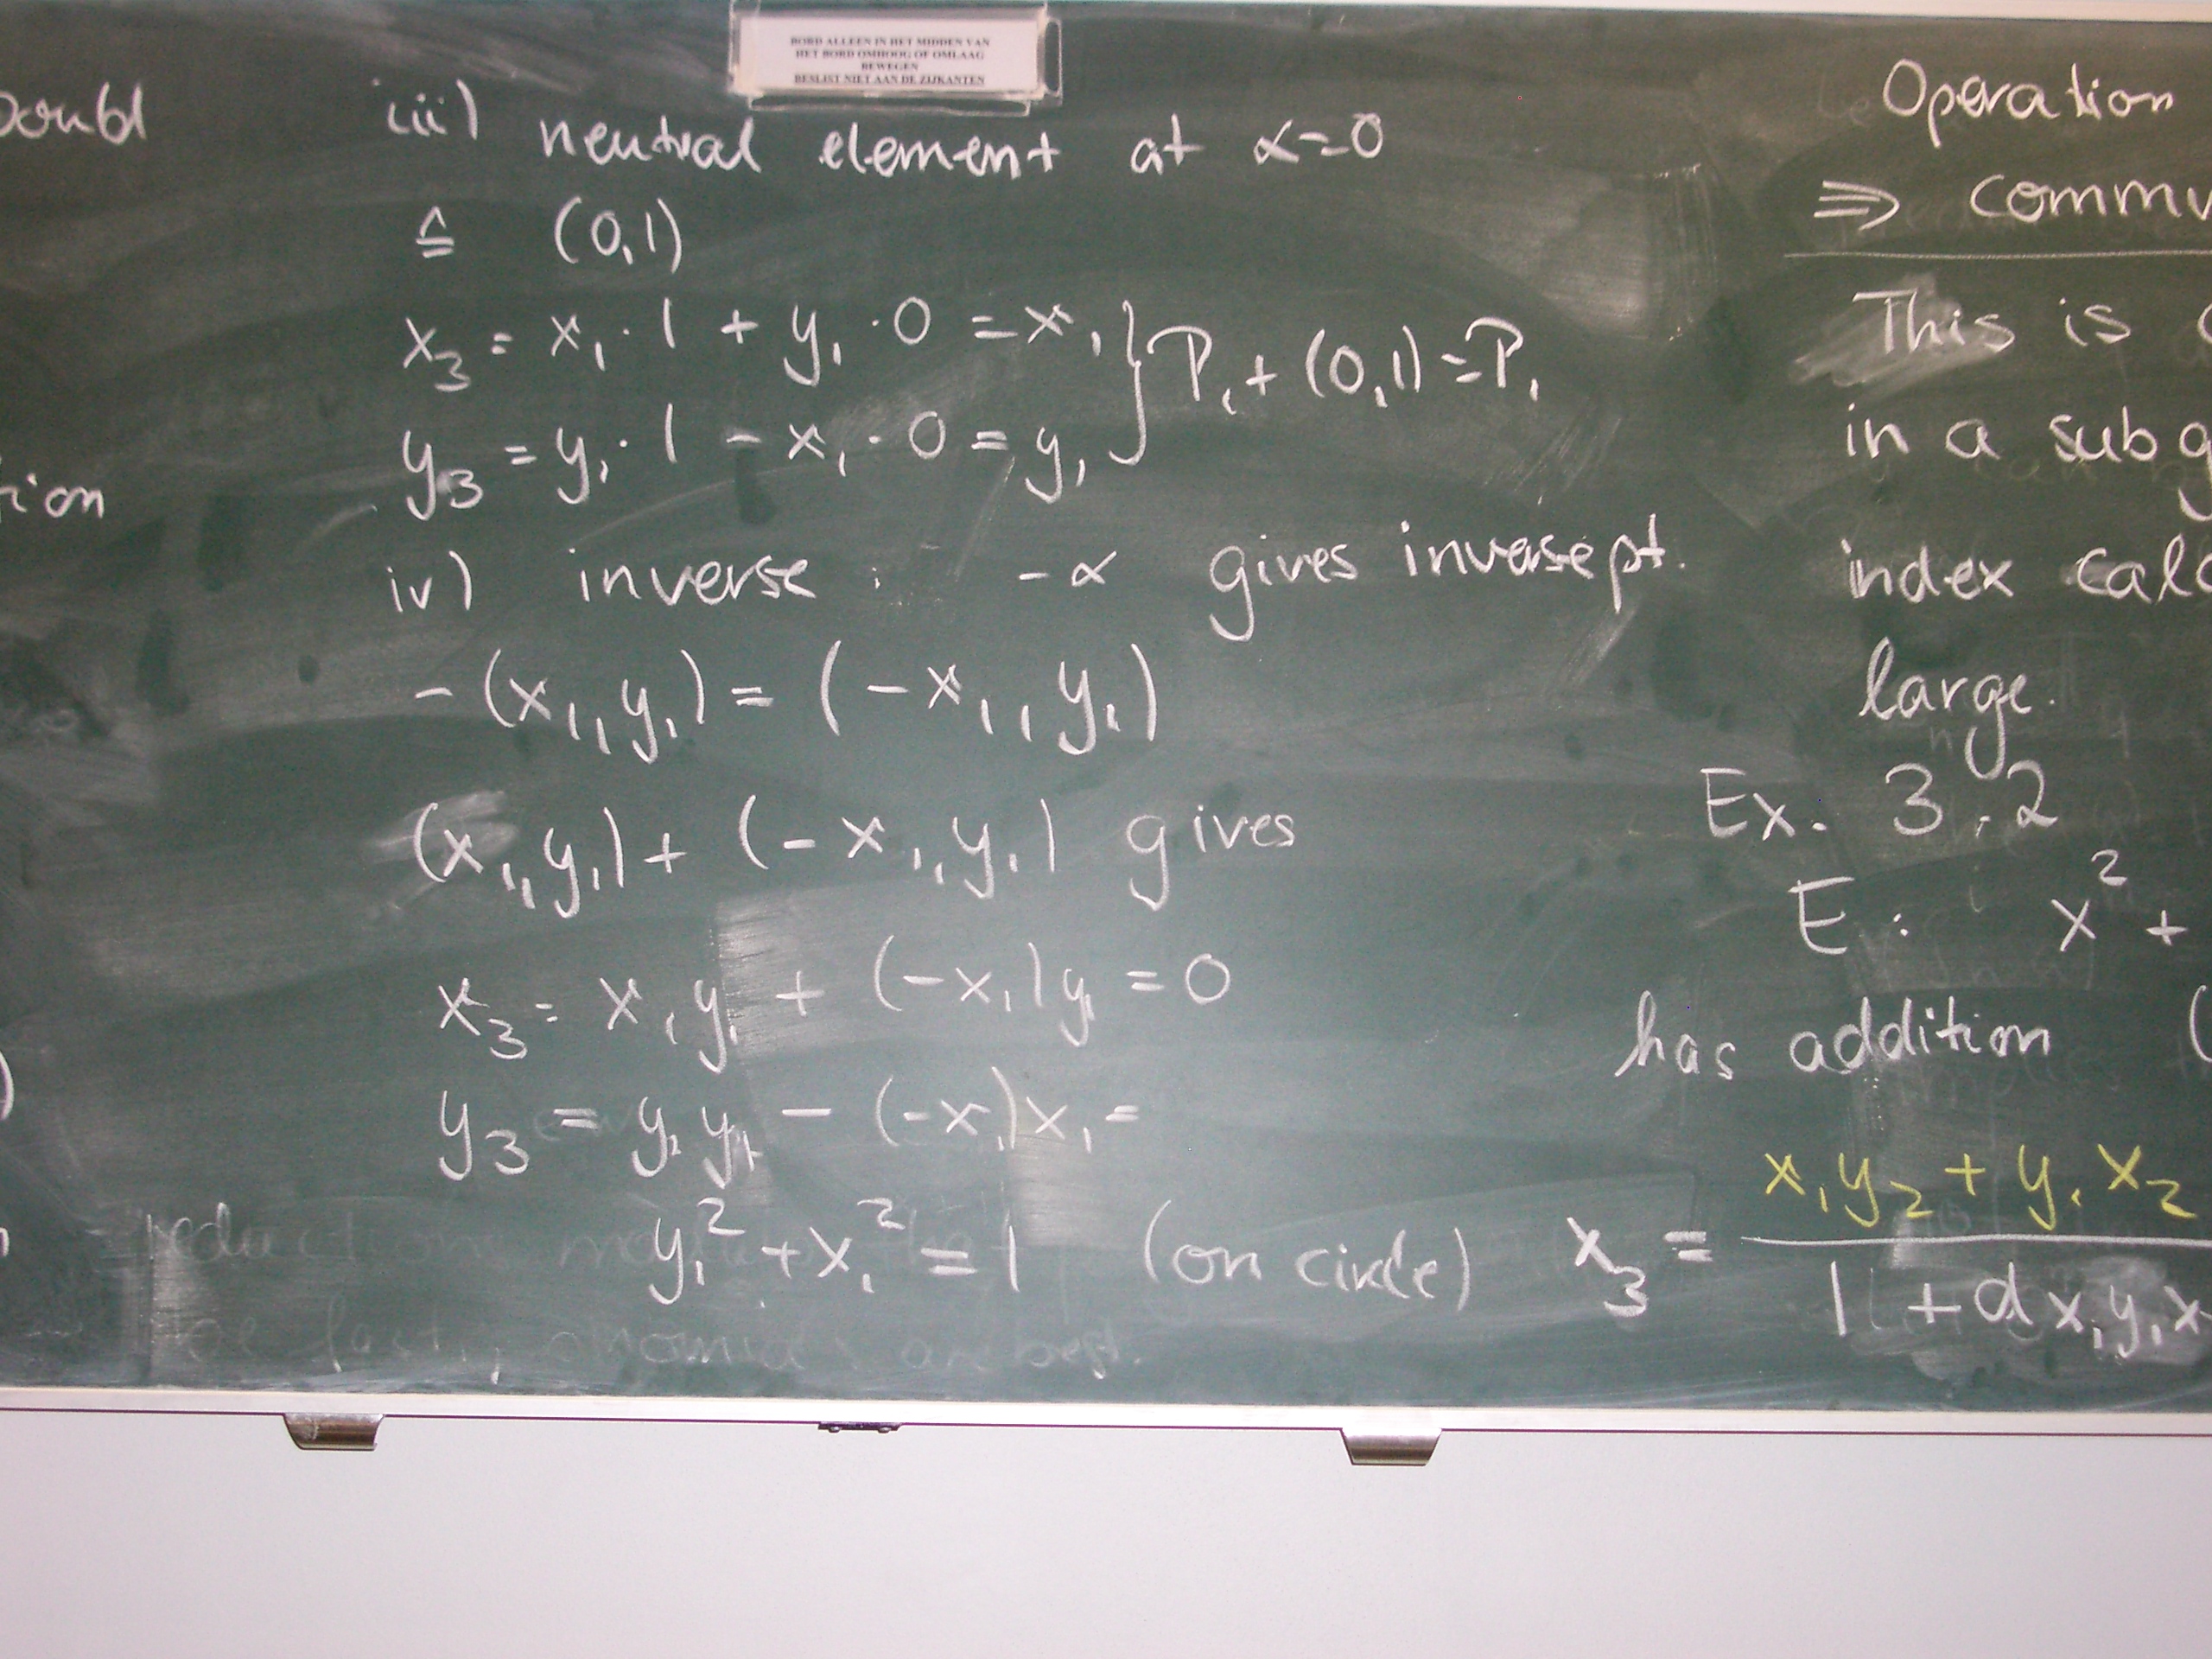 BORD ALLEEN IN HET MIDDEN VAN
HET BORD OMHOOG OF OMLAAG
BEWEGEN
BESLIST NIET AAN DE ZIJKANTEN
iii) neutral element at α=0
≙ (0,1)
x₃ = x₁ · 1 + y₁ · 0 = x₁ } P₁ + (0,1) = P₁
y₃ = y₁ · 1 - x₁ · 0 = y₁
iv) inverse : -α gives inverse pt.
-(x₁, y₁) = (-x₁, y₁)
(x₁, y₁) + (-x₁, y₁) gives
x₃ = x₁ y₁ + (-x₁) y₁ = 0
y₃ = y₁ y₁ - (-x₁) x₁ =
y₁² + x₁² = 1 (on circle)
Operation
⇒ commu
This is
in a subg
index calc
large.
Ex. 3.2
E : x² +
has addition (
x₃ = x₁y₂ + y₁x₂
1 + dx₁y₁x